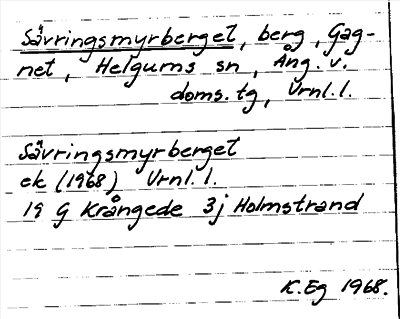 Sävringsmyrberget, berg, Gag-
net, Helgums sn, Ång. v.
doms. tg, Vrnl. l.
Sävringsmyrberget
ek (1968) Vrnl. l.
19 G Krångede 3j Holmstrand
K. Eg 1968.